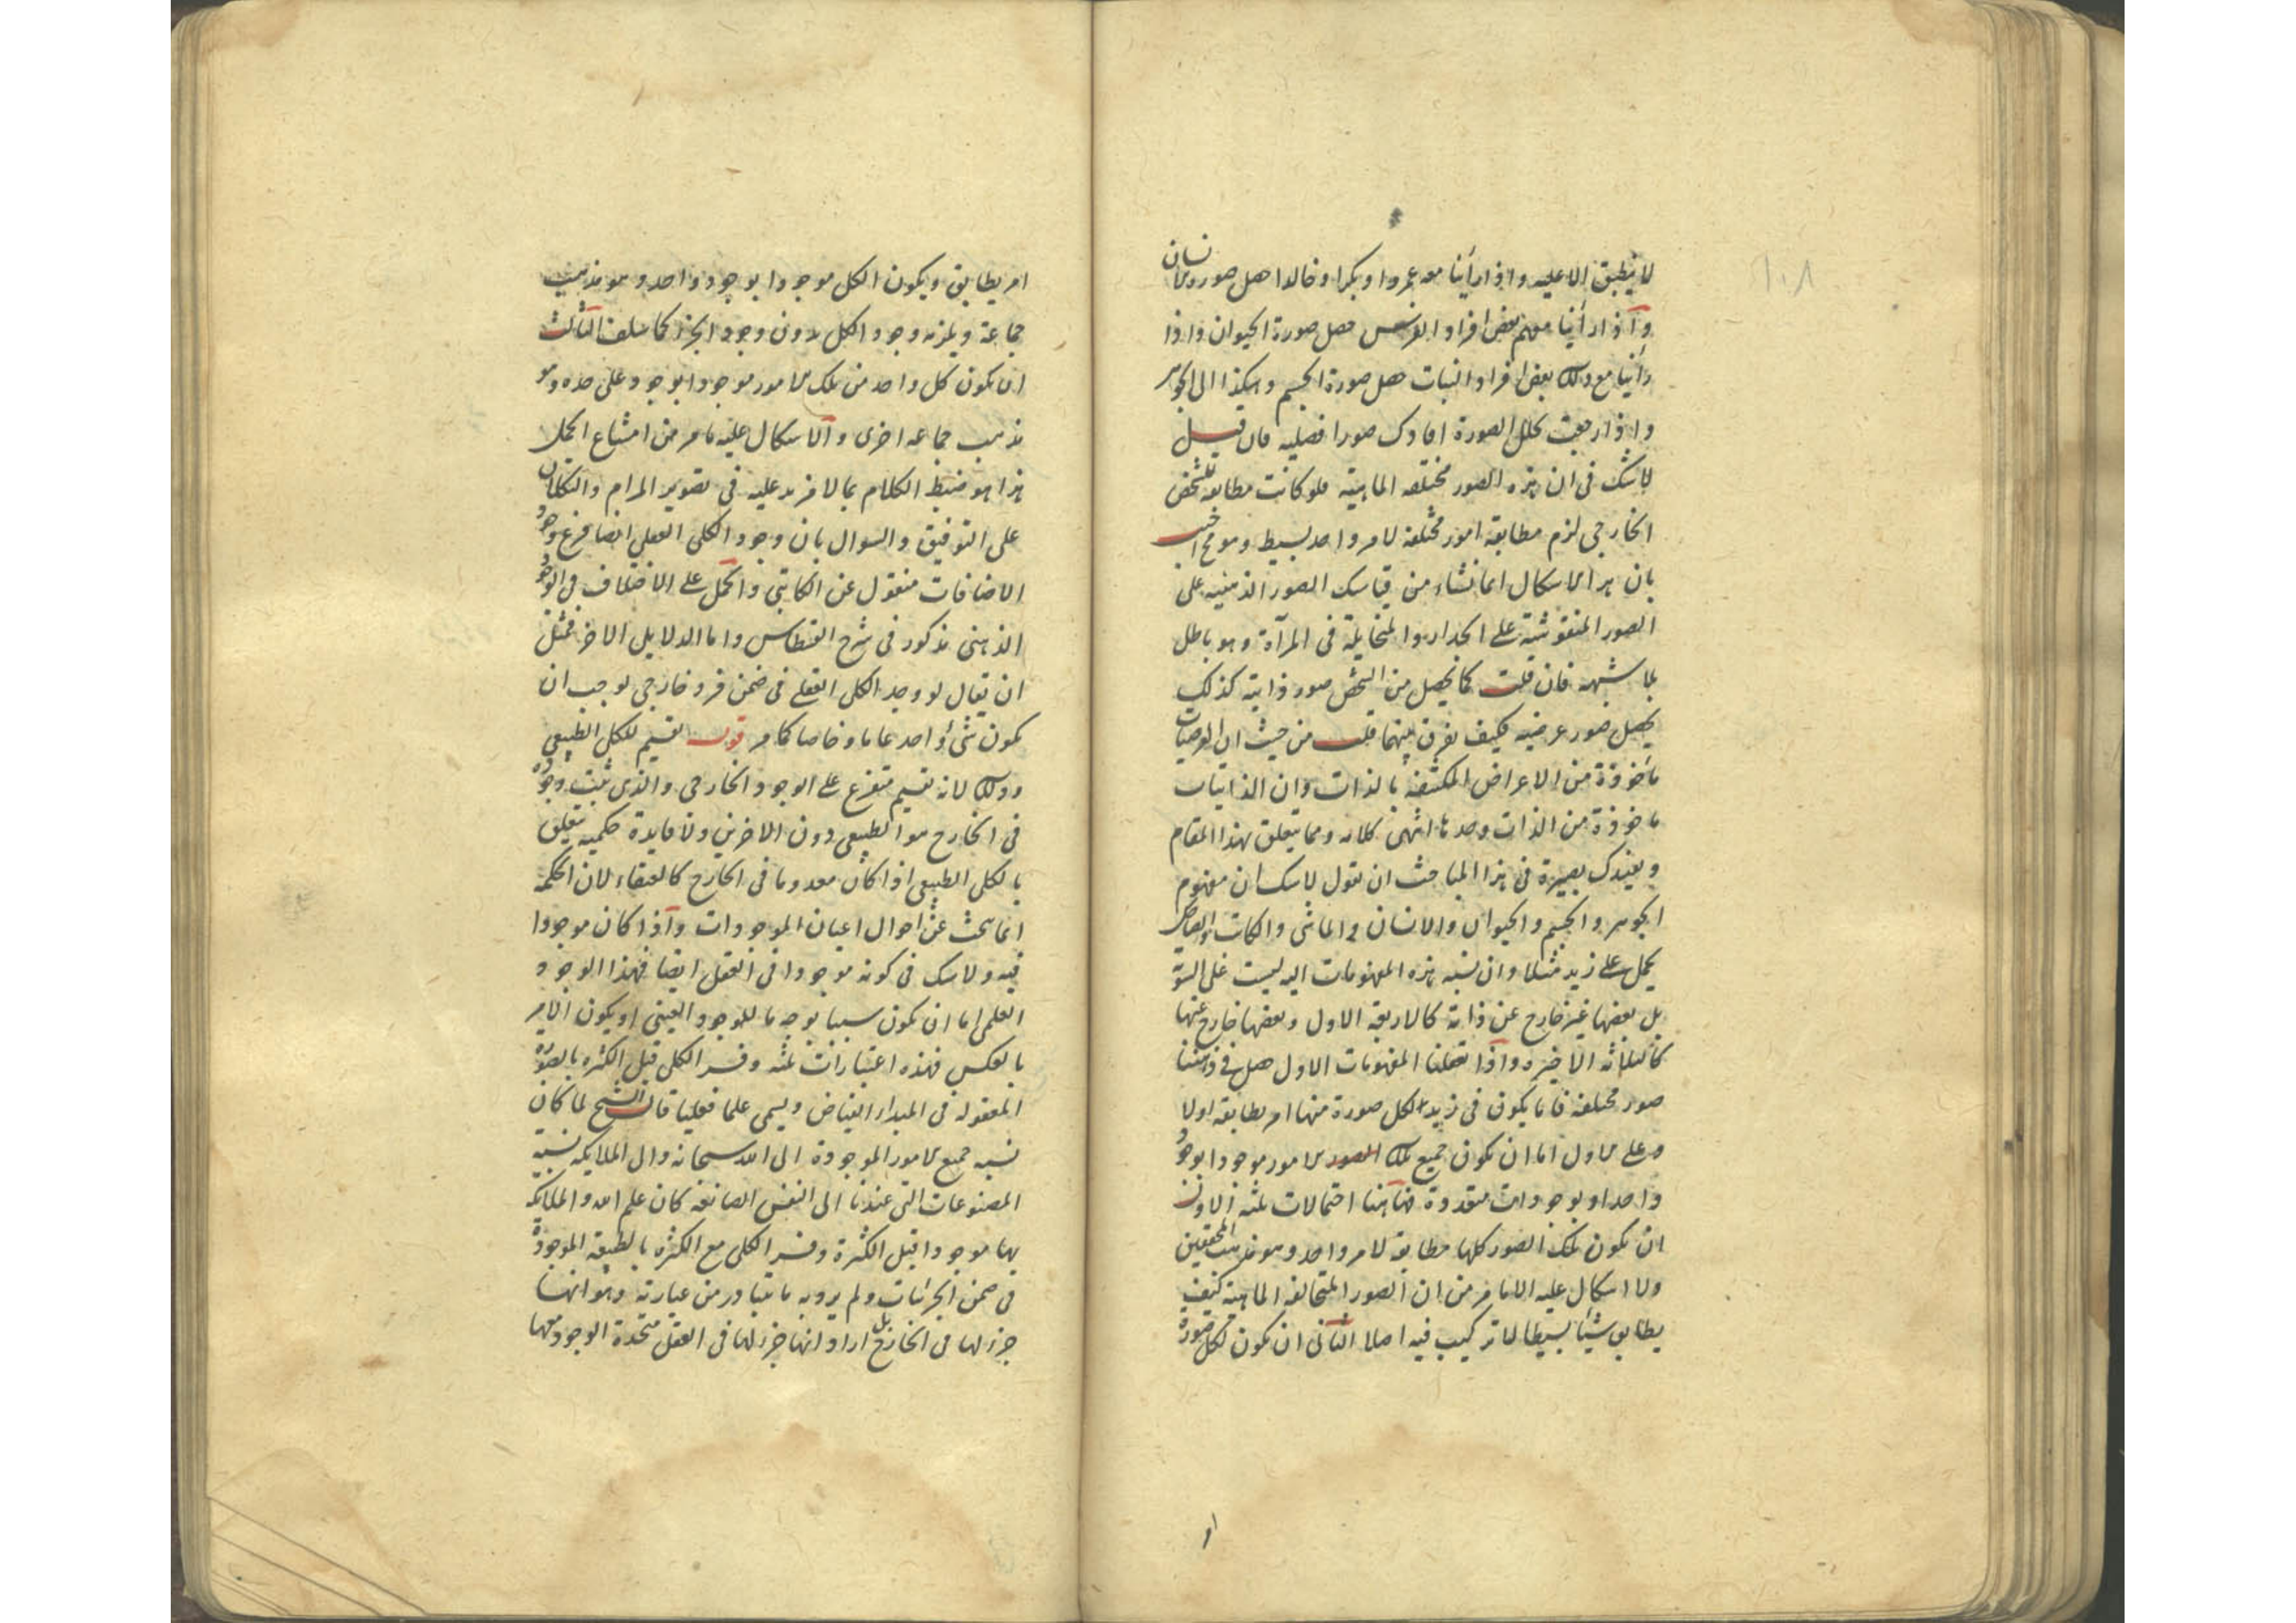 ١٠٨
لا ينطبق الا عليه واذا رأينا معه عمروا وبكرا وخالدا حصل صورة الانسان
واذا رأينا معهم بعض افراد الفرس حصل صورة الحيوان واذا
رأينا مع ذلك بعض افراد النبات حصل صورة الجسم وهكذا الى الجوهر
واذا رجعت تحلل الصورة افادك صورا فصليه فان قيل
لا شك فى ان هذه الصور مختلفه الماهية فلو كانت مطابقه للشخص
الخارجى لزم مطابقة امور مختلفة لامر واحد بسيط وهو مح اجيب
بان هذا الاشكال انما نشاء من قياسك الصور الذهنيه على
الصور المنقوشة على الجدار والمتخايلة فى المرآة وهو باطل
بلا شبهه فان قلت كما يحصل من الشخص صور ذاتية كذلك
يحصل صور عرضيه فكيف نفرق بينهما قلت من حيث ان العرضيات
مأخوذة من الاعراض المكتنفة بالذات وان الذاتيات
ماخوذة من الذات وحدها انتهى كلامه ومما يتعلق بهذا المقام
ويفيدك بصيرة فى هذا المباحث ان نقول لا شك ان مفهوم
الجوهر والجسم والحيوان والانسان والماشى والكاتب والضاحك
يحمل على زيد مثلا وان نسبه هذه المفهومات اليه ليست على السوية
بل بعضها غير خارج عن ذاته كالاربعه الاول وبعضها خارج عنها
كالثلاثه الاخيره واذا تعقلنا المفهومات الاول حصل فى ذهننا
صور مختلفة فاما يكون فى زيد لكل صورة منها امر يطابقه اولا
وعلى الاول اما ان يكون جميع تلك الصور الامور موجودا بوجود
واحد او بوجودات متعددة فههنا احتمالات ثلثه الاول
ان يكون تلك الصور كلها مطابقه لامر واحد وهو مذهب المحققين
ولا اشكال عليه الا مامر من ان الصور المتخالفه الماهية كيف
يطابق شيئا بسيطا لا تركيب فيه اصلا الثانى ان يكون لكل صورة
امر يطابق ويكون الكل موجودا بوجود واحد وهو مذهب
جماعة ويلزمه وجود الكل بدون وجود الجزء كما سلف الثالث
ان يكون كل واحد من تلك الامور موجودا بوجود على حده وهو
مذهب جماعه اخرى والاشكال عليه مامر من امتناع الحمل
هذا هو ضبط الكلام بما لا مزيد عليه فى تصوير المرام والتكلان
على التوفيق والسوال بان وجود الكلى العقلى ايضا فرع وجود
الاضافات منقول عن الكاتبى والحمل على الاختلاف فى الوجود
الذهنى مذكور فى شرح القسطاس واما الدلايل الاخر فمثل
ان يقال لو وجد الكلى العقلى فى ضمن فرد خارجى لوجب ان
يكون شئ واحد عاما وخاصا كما مر قوله تقسيم للكلى الطبيعى
وذلك لانه تقسيم متفرع على الوجود الخارجى والذى ثبت وجوده
فى الخارج هو الطبيعى دون الاخرين ولا فايدة حكميه يتعلق
بالكلى الطبيعى اذا كان معدوما فى الخارج كالعنقاء لان الحكمه
انما يبحث عن احوال اعيان الموجودات واذا كان موجودا
فيه ولا شك فى كونه موجودا فى العقل ايضا فهذا الوجود
العلمى اما ان يكون سببا بوجه ما للوجود العينى او يكون الامر
بالعكس فهذه اعتبارات ثلثه وفسر الكلى قبل الكثره بالصوره
المعقوله فى المبدأ الفياض ويسمى علما فعليا قال الشيخ لما كان
نسبه جميع الامور الموجودة الى الله سبحانه والى الملايكه نسبة
المصنوعات التى عندنا الى النفس الصانعه كان علم الله والملايكه
بها موجودا قبل الكثرة وفسر الكلى مع الكثره بالطبيعة الموجودة
فى ضمن الجزئيات ولم يرد به ما يتبادر من عبارته وهو انها
جزء لها فى الخارج بل اراد انها جزء لها فى العقل متحدة الوجود معها
امر